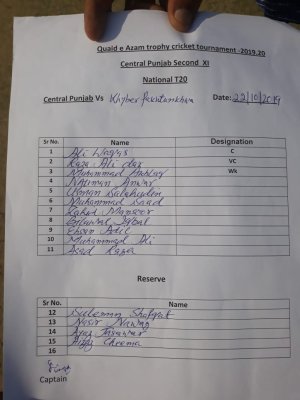 Quaid e Azam trophy cricket tournament -2019.20
Central Punjab Second XI
National T20
Central Punjab Vs Khyber Pakhtunkhwa Date: 22/10/2019
Sr No. Name Designation
1 Ali Waqas C
2 Raza Ali dar VC
3 Muhammad Wk
4 Nauman Anwar
5 Usman Salahudin
6 Muhammad Saad
7 Zahid Mansoor
8 Bilawal Iqbal
9 Ehsan Adil
10 Muhammad Ali
11 Asad Raza
Reserve
Sr No. Name
12 Suleman Shafqat
13 Nasir Nawaz
14 Ayaz Tasawar
15 Aizaz Cheema
16
Captain